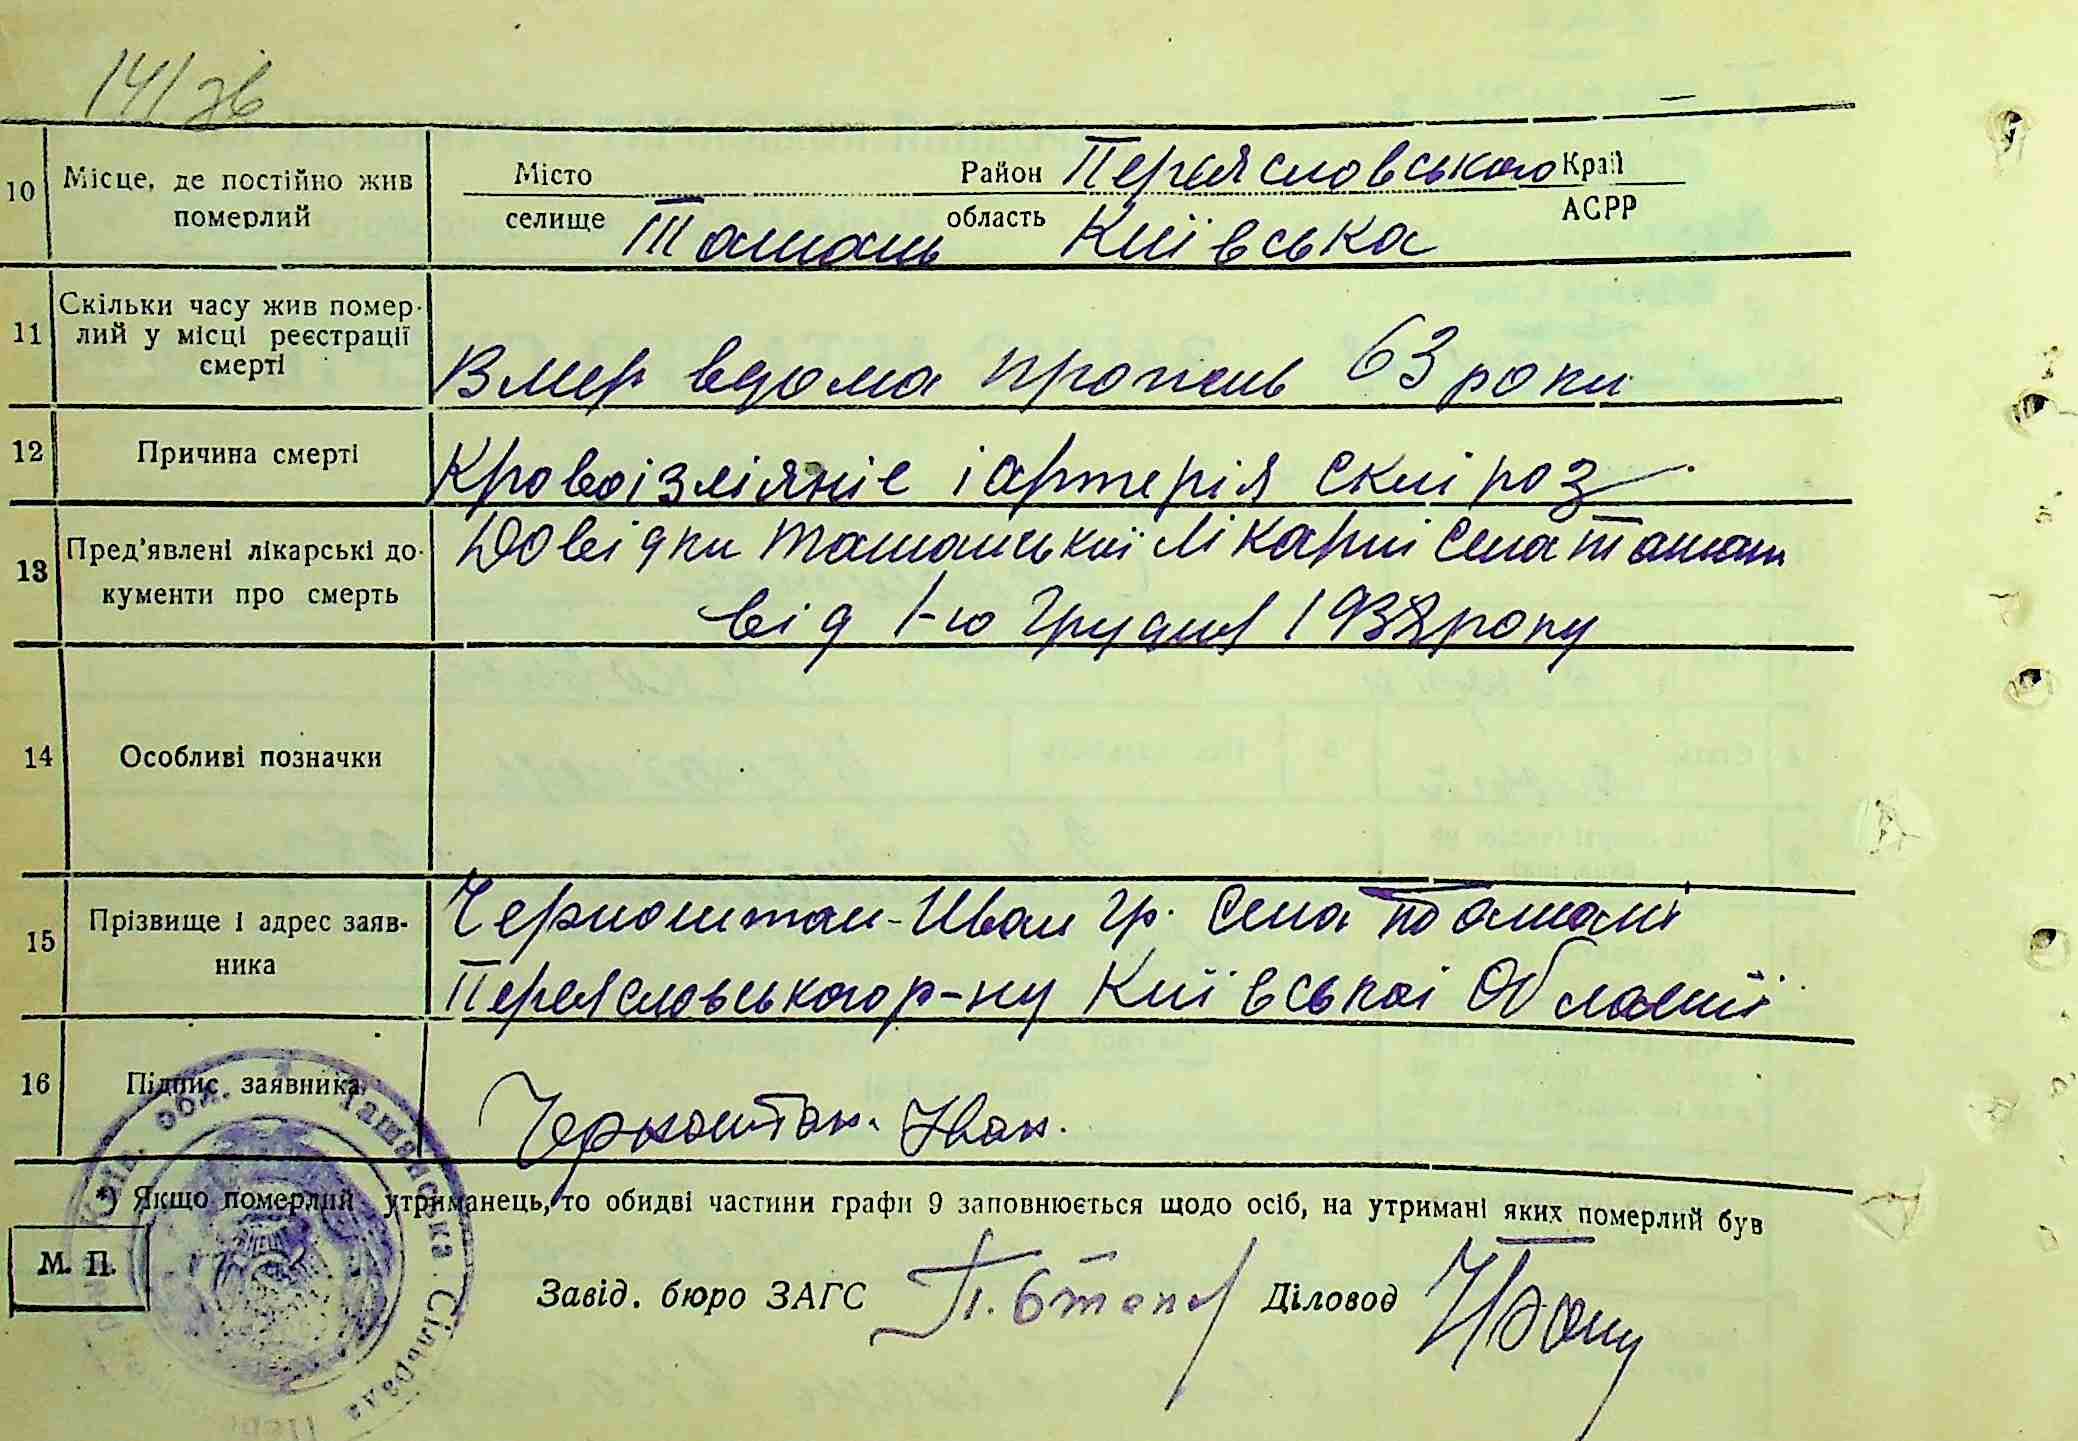 10 Місце, де постійно жив померлий
Місто Район Переясловського Край
селище Ташань область Київська АСРР
11 Скільки часу жив помер-
лий у місці реєстрації
смерті
Вмер вдома прожив 63 роки
12 Причина смерті Кровоізліяніє і артерія склі роз
13 Пред'явлені лікарські до-
кументи про смерть
Довідки Ташанської лікарні села Ташань
від 1-го Грудня 1938 року
14 Особливі позначки
15 Прізвище і адрес заяв-
ника
Черноштан Иван гр. села Ташані
Переясловського р-ну Київської Області
16 Підпис заявника Черноштан. Иван.
*) Якщо померлий утриманець, то обидві частини графи 9 заповнюється щодо осіб, на утримані яких померлий був
М. П.
Завід. бюро ЗАГС Діловод
Київ. обл. Ташанська Сільрада